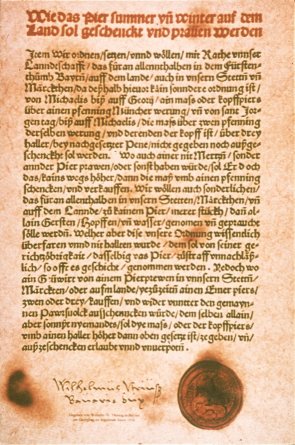 Wie das Pier summer vñ winter auf dem
Land sol geschenckt vnd prawen werden
Item Wir ordnen / setzen / vnnd wöllen / mit Rathe vnnser
Lanndtschafft / das füran allenthalben in dem Fürsten-
thumb Bayrn / auff dem lannde / auch in vnsern Stettñ vñ
Märckthen / da deßhalb hieuor kain sonndere ordnung ist /
von Michaelis biß auff Georij / ain mass oder kopffpiers
über ainen pfenning Müncher werung / vñ von sant Jor-
gen tag / biß auff Michaelis / die mass über zwen pfenning
derselben werung / vnd derenden der kopff ist / über drey
haller / bey nachgesetzter Pene / nicht gegeben noch außge-
schenckht sol werden. Wo auch ainer nit Mertzñ / sonder
annder Pier prawen / oder sonst haben würde / sol Er doch
das / kains wegs höher / dann die maß vmb ainen pfenning
schencken / vnd verkauffen. Wir wöllen auch sonderlichen /
das füran allenthalben in vnsern Stetten / Märckthen / vñ
auff dem Lannde / zu kainem Pier / merer stückh / dañ al-
lain Gersten / Hopffen / vñ wasser / genomen vñ gepraucht
sölle werdñ. Welher aber dise vnsere Ordnung wissentlich
überfaren vnnd nit hallten wurde / dem sol von seiner ge-
richtzöbrigkait / dasselbig vas Pier / zustraff vnnachläß-
lich / so offt es geschicht / genommen werden. Jedoch wo
ain Gäuwirt von ainem Pierprewen in vnnsern Stettñ /
Märckten / oder aufm lande / yezůzeitñ ainen Emer piers /
zwen oder drey / kauffen / vnd wider vnntter den gemaynen
Pawrsuolck ausschenncken würde / dem selben allain /
aber sonnst nyemandes / sol dye mass / oder der kopffpiers /
vmb ainen haller höher dann oben gesetzt ist / ze geben / vñ /
außzeschencken erlaubt vnnd vnuerpotñ.